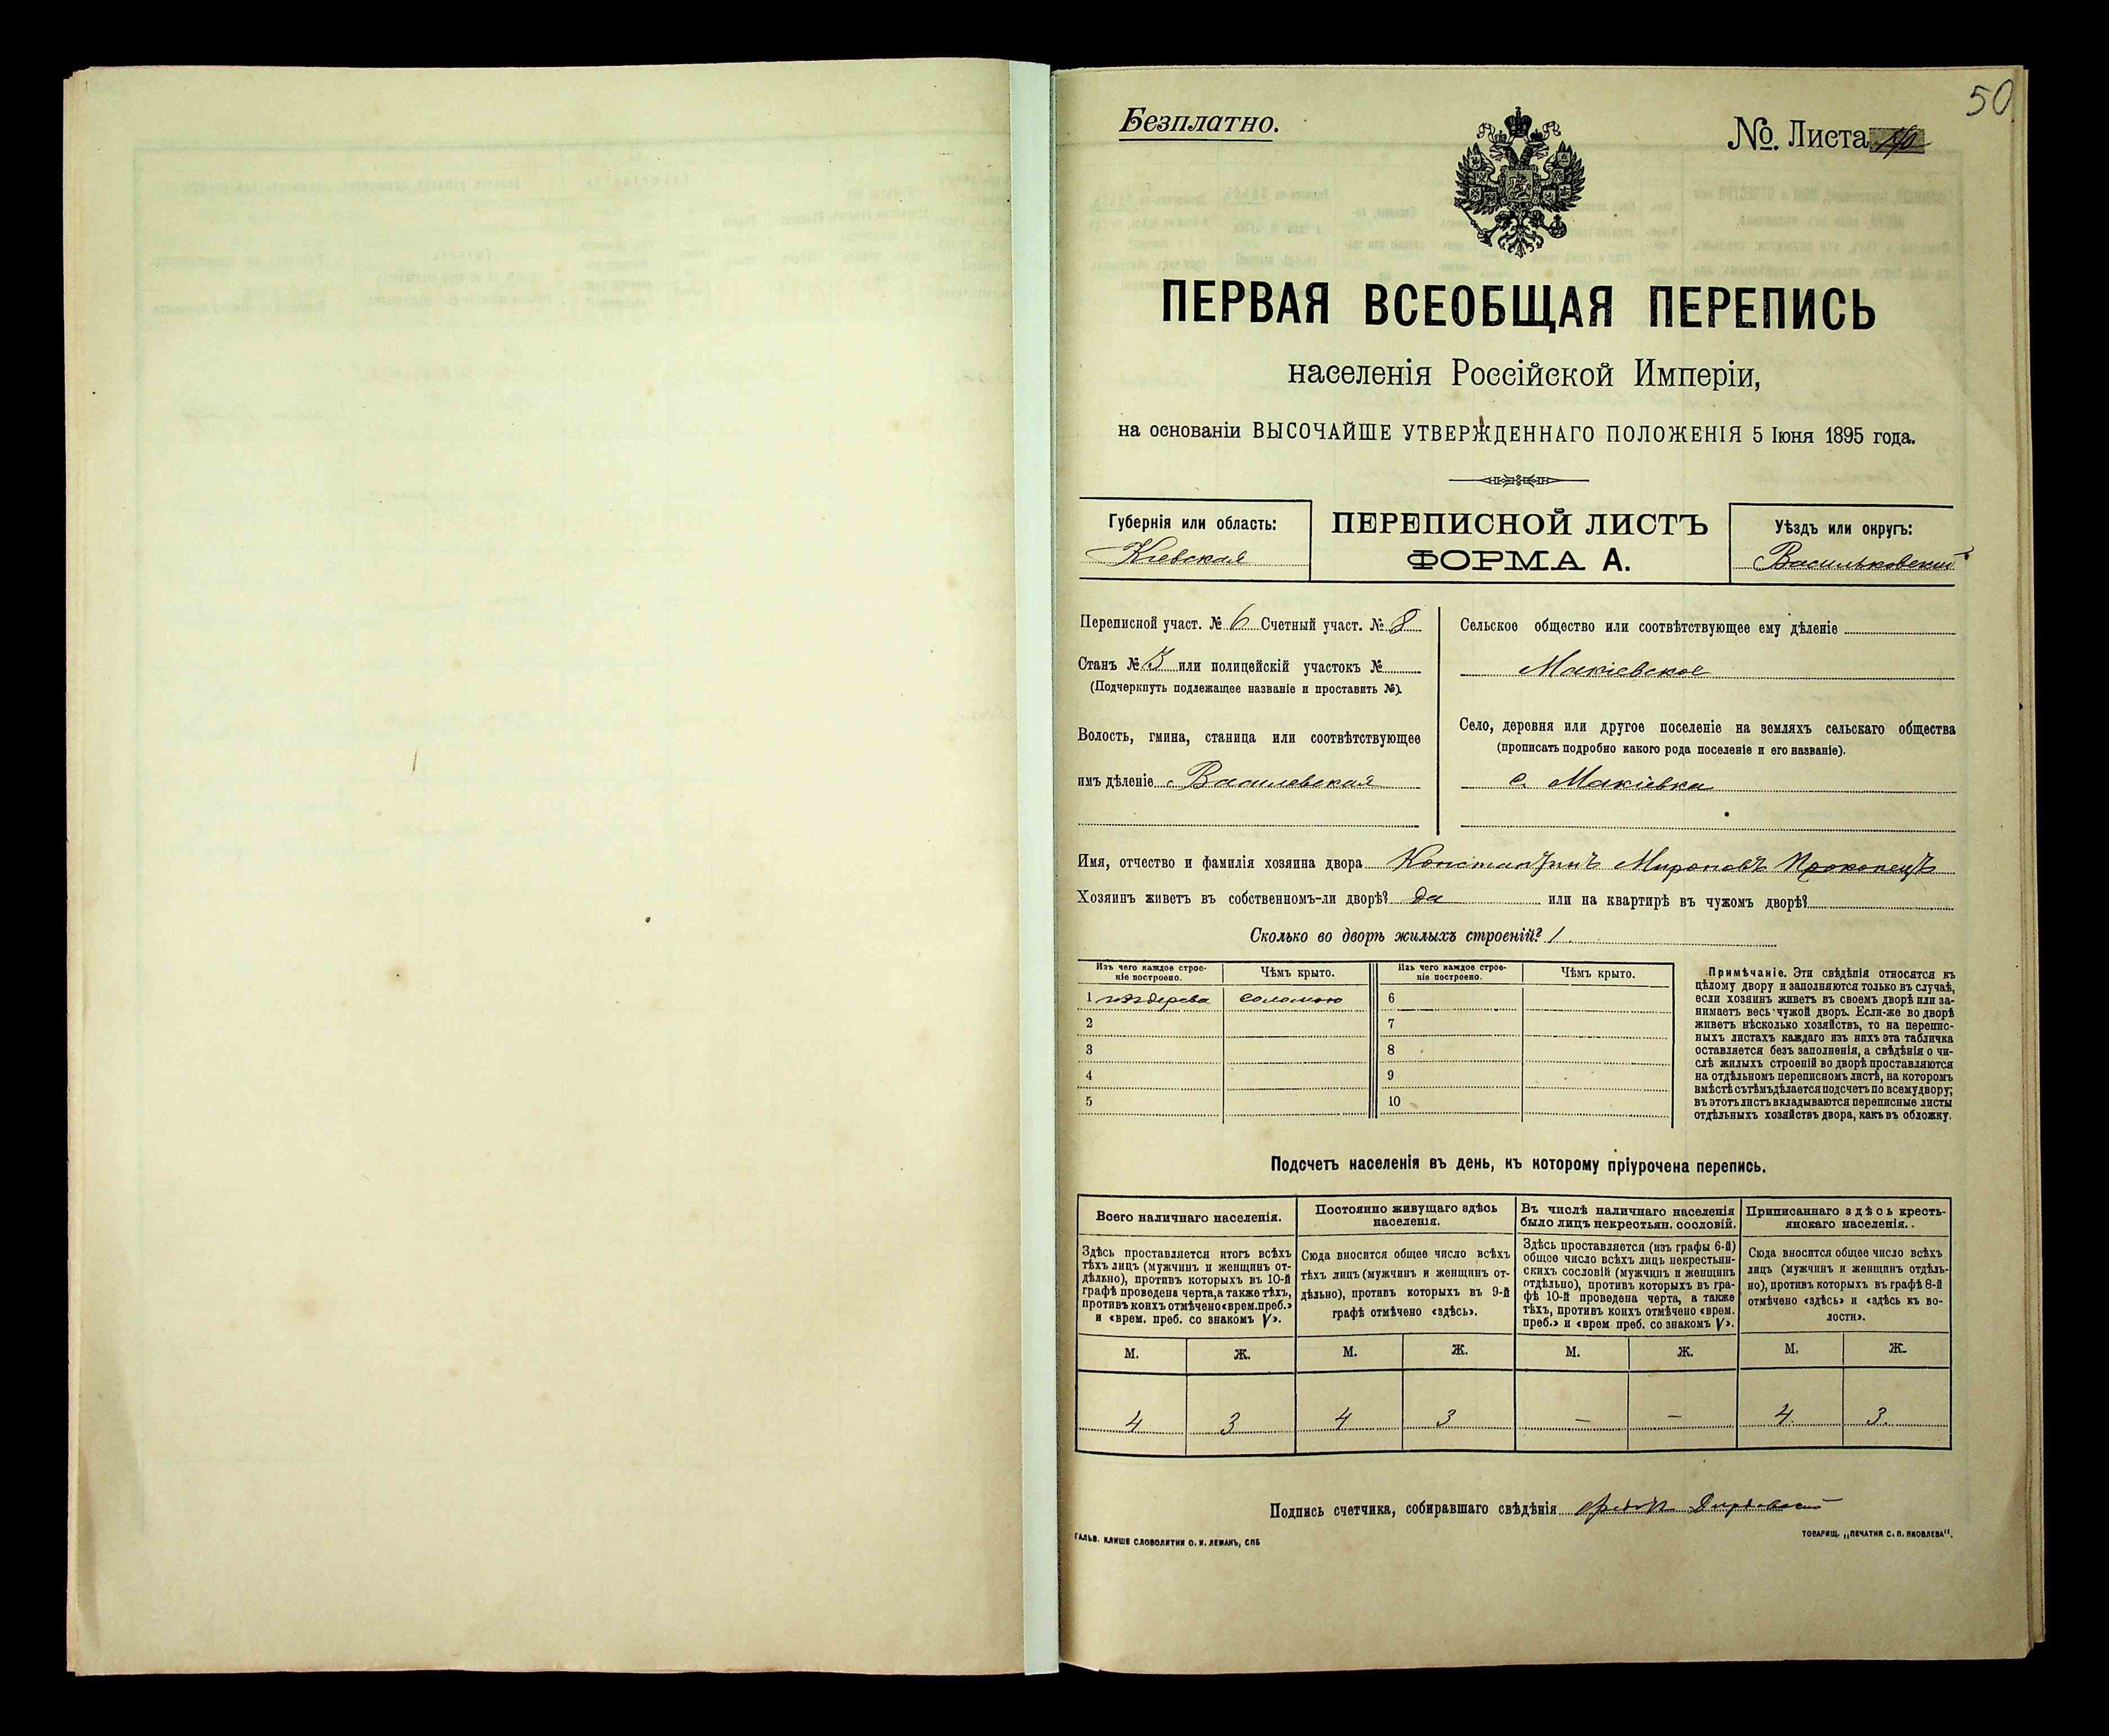 50
Безплатно.
№. Листа
ПЕРВАЯ ВСЕОБЩАЯ ПЕРЕПИСЬ
населенія Россійской Имперіи,
на основаніи ВЫСОЧАЙШЕ УТВЕРЖДЕННАГО ПОЛОЖЕНІЯ 5 Іюня 1895 года.
Губернія или область:
Кіевская
ПЕРЕПИСНОЙ ЛИСТЪ
ФОРМА А.
Уѣздъ или округъ:
Васильковскій
Переписной участ. № 6 Счетный участ. № 8
Станъ № 3 или полицейскій участокъ №
(Подчеркнуть подлежащее названіе и проставить №).
Волость, гмина, станица или соотвѣтствующее
имъ дѣленіе с. Василевская
Сельское общество или соотвѣтствующее ему дѣленіе
Макіевское
Село, деревня или другое поселеніе на земляхъ сельскаго общества
(прописать подробно какого рода поселеніе и его названіе).
с. Макіевка
Имя, отчество и фамилія хозяина двора Константинъ Мироновъ Прокопецъ
Хозяинъ живетъ въ собственномъ-ли дворѣ? да или на квартирѣ въ чужомъ дворѣ?
Сколько во дворѣ жилыхъ строеній? 1
Изъ чего каждое строе-
ніе построено.
Чѣмъ крыто.
Изъ чего каждое строе-
ніе построено.
Чѣмъ крыто.
1 изъ дерева соломою 6
2 7
3 8
4 9
5 10
Примѣчаніе. Эти свѣдѣнія относятся къ
цѣлому двору и заполняются только въ случаѣ,
если хозяинъ живетъ въ своемъ дворѣ или за-
нимаетъ весь чужой дворъ. Если-же во дворѣ
живетъ нѣсколько хозяйствъ, то на перепис-
ныхъ листахъ каждаго изъ нихъ эта табличка
оставляется безъ заполненія, а свѣдѣнія о чи-
слѣ жилыхъ строеній во дворѣ проставляются
на отдѣльномъ переписномъ листѣ, на которомъ
вмѣстѣ съ тѣмъ дѣлается подсчетъ по всему двору;
въ этотъ листъ вкладываются переписные листы
отдѣльныхъ хозяйствъ двора, какъ въ обложку.
Подсчетъ населенія въ день, къ которому пріурочена перепись.
Всего наличнаго населенія.
Здѣсь проставляется итогъ всѣхъ
тѣхъ лицъ (мужчинъ и женщинъ от-
дѣльно), противъ которыхъ въ 10-й
графѣ проведена черта, а также тѣхъ,
противъ коихъ отмѣчено «врем. преб.»
и «врем. преб. со знакомъ V».
Постоянно живущаго здѣсь
населенія.
Сюда вносится общее число всѣхъ
тѣхъ лицъ (мужчинъ и женщинъ от-
дѣльно), противъ которыхъ въ 9-й
графѣ отмѣчено «здѣсь».
Въ числѣ наличнаго населенія
было лицъ некрестьян. сословій.
Здѣсь проставляется (изъ графы 6-й)
общее число всѣхъ лицъ некрестьян-
скихъ сословій (мужчинъ и женщинъ
отдѣльно), противъ которыхъ въ гра-
фѣ 10-й проведена черта, а также
тѣхъ, противъ коихъ отмѣчено «врем.
преб.» и «врем преб. со знакомъ V».
Приписаннаго здѣсь кресть-
янскаго населенія.
Сюда вносится общее число всѣхъ
лицъ (мужчинъ и женщинъ отдѣль-
но), противъ которыхъ въ графѣ 8-й
отмѣчено «здѣсь» и «здѣсь къ во-
лости».
М. Ж. М. Ж. М. Ж. М. Ж.
4 3 4 3 — — 4 3
Подпись счетчика, собиравшаго свѣдѣнія
ГАЛЬВ. КЛИШЕ СЛОВОЛИТНИ О. И. ЛЕМАНЪ, СПБ
ТОВАРИЩ. „ПЕЧАТНЯ С. П. ЯКОВЛЕВА".